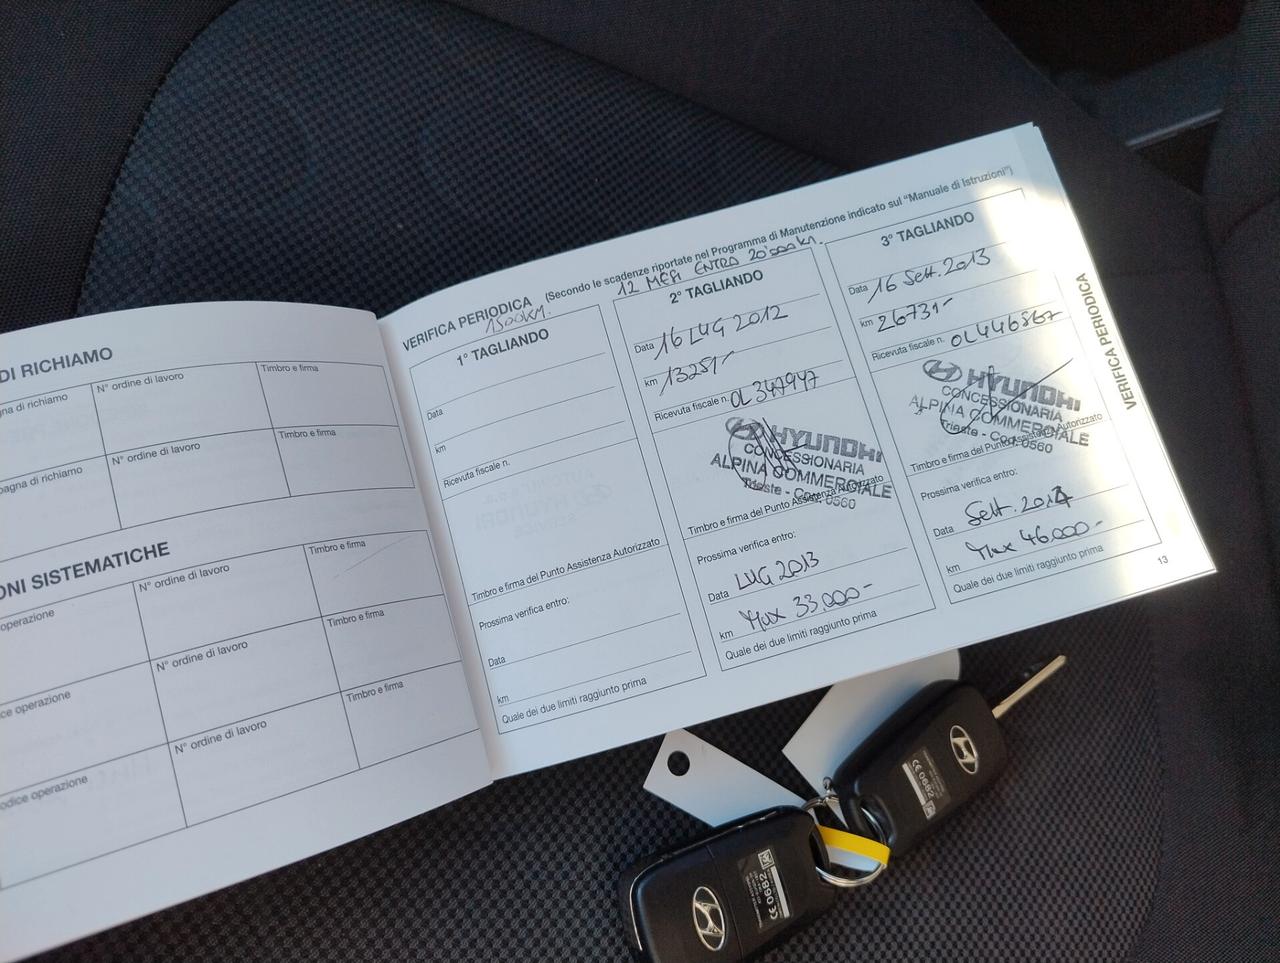 DI RICHIAMO
gna di richiamo
N° ordine di lavoro
Timbro e firma
pagna di richiamo
N° ordine di lavoro
Timbro e firma
ONI SISTEMATICHE
operazione
N° ordine di lavoro
Timbro e firma
ice operazione
N° ordine di lavoro
Timbro e firma
odice operazione
N° ordine di lavoro
Timbro e firma
VERIFICA PERIODICA (Secondo le scadenze riportate nel Programma di Manutenzione indicato sul "Manuale di Istruzioni")
1500KM.
1° TAGLIANDO
Data
km
Ricevuta fiscale n.
Timbro e firma del Punto Assistenza Autorizzato
Prossima verifica entro:
Data
km
Quale dei due limiti raggiunto prima
12 MESI ENTRO 20'000KM.
2° TAGLIANDO
Data 16 LUG 2012
km 13251-
Ricevuta fiscale n. OL 347947
HYUNDAI
CONCESSIONARIA
ALPINA COMMERCIALE
Trieste - Cod. 0560
Timbro e firma del Punto Assistenza Autorizzato
Prossima verifica entro:
Data LUG 2013
km Max 33000-
Quale dei due limiti raggiunto prima
3° TAGLIANDO
Data 16 Sett. 2013
km 26731-
Ricevuta fiscale n. OL446867
HYUNDAI
CONCESSIONARIA
ALPINA COMMERCIALE
Trieste - Cod. 0560
Timbro e firma del Punto Assistenza Autorizzato
Prossima verifica entro:
Data Sett. 2014
km Max 46000-
Quale dei due limiti raggiunto prima
VERIFICA PERIODICA
13
CE 0682
CE 0682